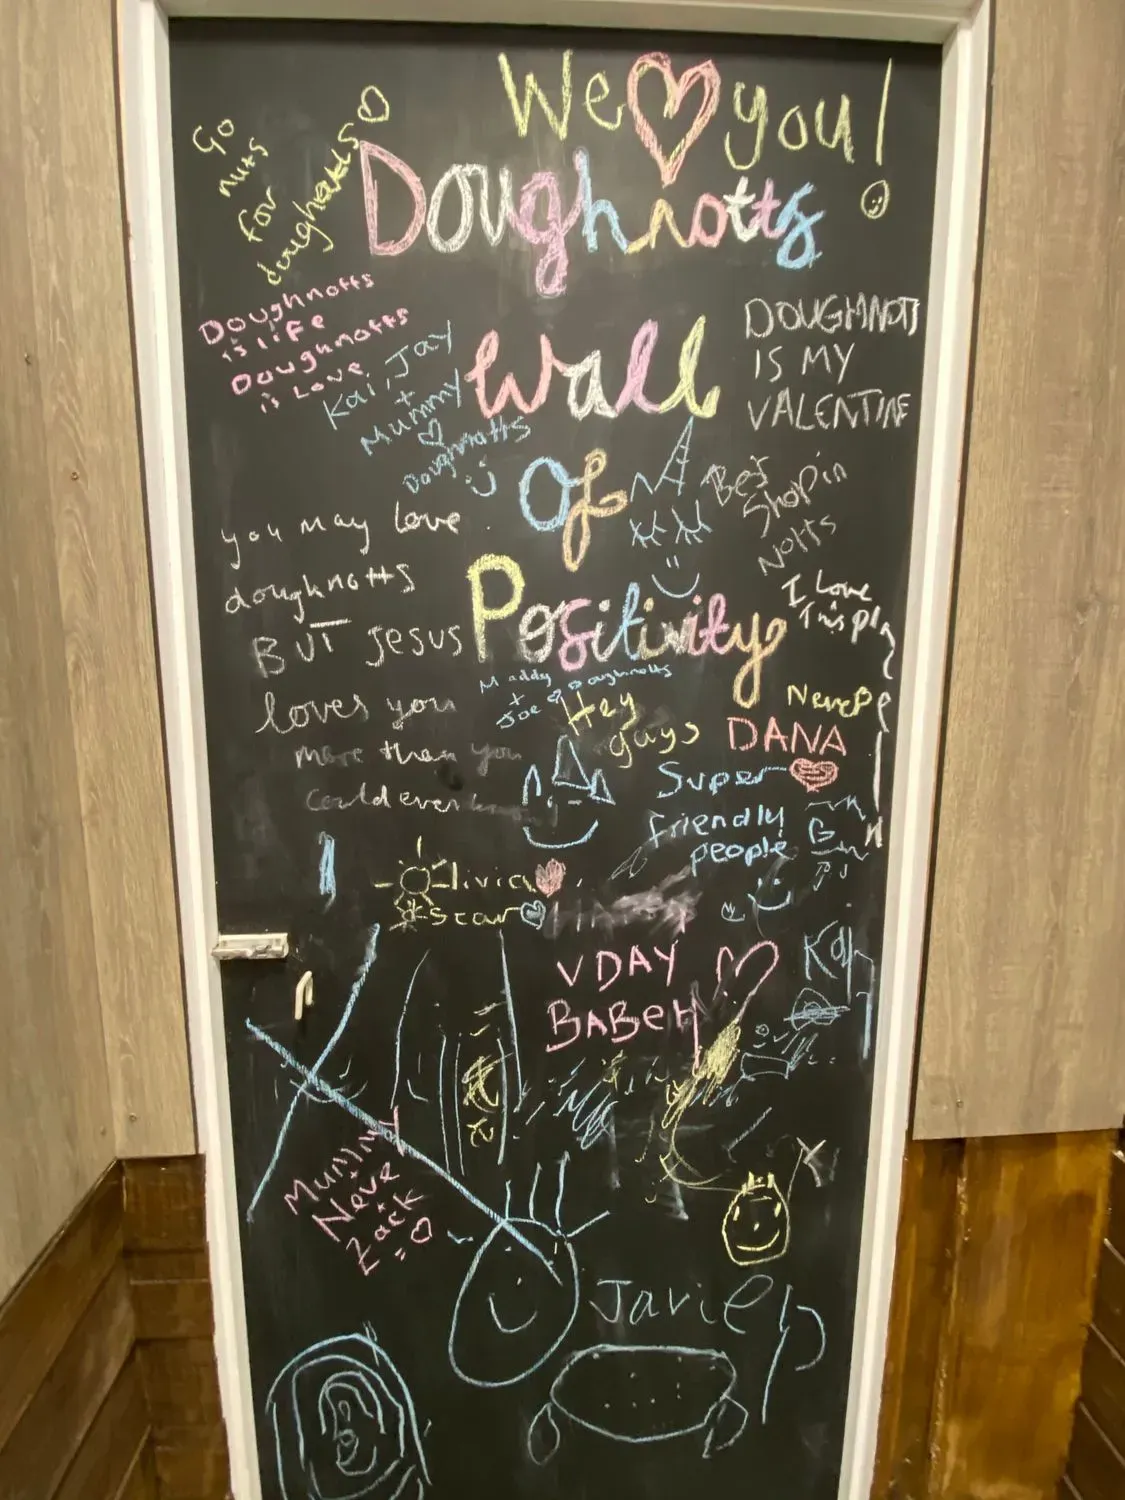 We you!
Go
nuts
for
doughnotts
Doughnotts
Wall
Of
Positivity
Doughnotts
is life
Doughnotts
is Love
Kai, Jay
+
Mummy
Doughnotts
:)
DOUGHNOTTS
IS MY
VALENTINE
Best
Shop in
Notts
I Love
This place
you may love
doughnotts
BUT Jesus
loves you
more than you
could ever
Maddy
+
Joe Doughnotts
Hey
guys
Neve
DANA
Super
friendly
people
Olivia
Oscar
VDAY
BABEH
Mummy
Neve
+
Zack
Jarie